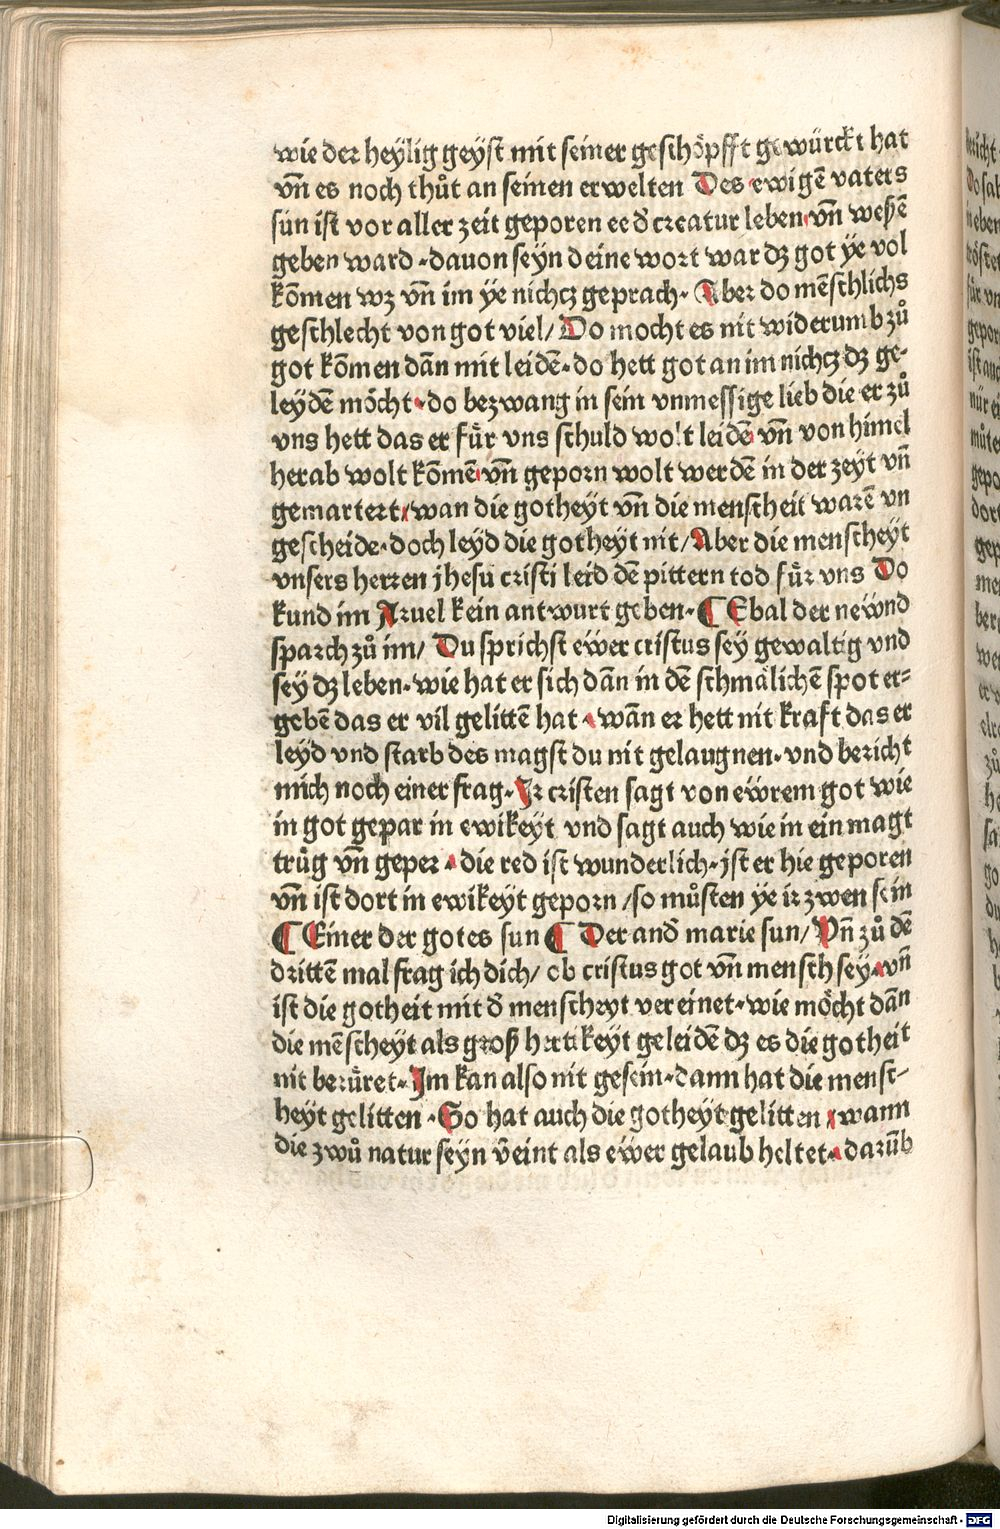 wie der heylig geyst mit seiner geschöpfft gewürckt hat
vn̄ es noch thůt an seinen erwelten Des ewigē vaters
sun ist vor aller zeit geporen ee d̄ creatur leben vn̄ weßē
geben ward · dauon seyn deine wort war dz got ye vol
kōmen wz vn̄ im ye nichcz geprach · Aber do mēschlichs
geschlecht von got viel / Do mocht es nit widerumb zů
got kōmen dān mit leidē · do hett got an im nichcz dz ge-
leydē möcht · do bezwang in sein vnmessige lieb die er zů
vns hett das er für vns schuld wolt leidē vn̄ von himel
herab wolt kōmē vn̄ geporn wolt werdē in der zeyt vn̄
gemartert · wan die gotheyt vn̄ die menscheit warē vn
gescheide · doch leyd die gotheyt nit / Aber die menscheyt
vnsers herren jhesu cristi leid dē pittern tod für vns Do
kund im Azuel kein antwurt geben · ¶ Ebal der neẅnd
sparch zů im / Du sprichst eẅer cristus sey gewaltig vnd
sey dz leben · wie hat er sich dān in dē schmälichē spot er=
gebē das er vil gelittē hat · wān er hett nit kraft das er
leyd vnd starb des magst du nit gelaugnen · vnd bericht
mich noch einer frag · Ir cristen sagt von eẅrem got wie
in got gepar in ewikeyt vnd sagt auch wie in ein magt
trüg vn̄ geper · die red ist wunderlich · jst er hie geporen
vn̄ ist dort in ewikeyt geporn / so můsten ye ir zwen sein
¶ Einer der gotes sun ¶ Der and̄ marie sun / Vn̄ zů dē
drittē mal frag ich dich / ob cristus got vn̄ mensch sey · vn̄
ist die gotheit mit d̄ menscheyt vereinet · wie möcht dān
die mēscheyt als groß hertikeyt geleidē dz es die gotheit
nit berüret · Im kan also nit gesein · dann hat die mensc-
heyt gelitten · So hat auch die gotheyt gelitten · wann
die zwů natur seyn v̄eint als eẅer gelaub heltet · darūb
Digitalisierung gefördert durch die Deutsche Forschungsgemeinschaft - DFG